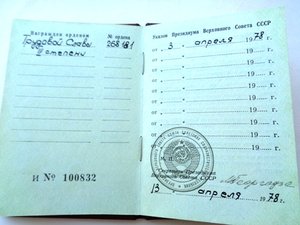 Награжден орденом
№ ордена
Трудовой Славы
268181
III степени
И № 100832
Указом Президиума Верховного Совета СССР
от 3 апреля 1978 г.
от 19 г.
от 19 г.
от 19 г.
от 19 г.
от 19 г.
от 19 г.
от 19 г.
М. П.
Секретарь Президиума
Верховного Совета СССР
13 апреля 1978 г.